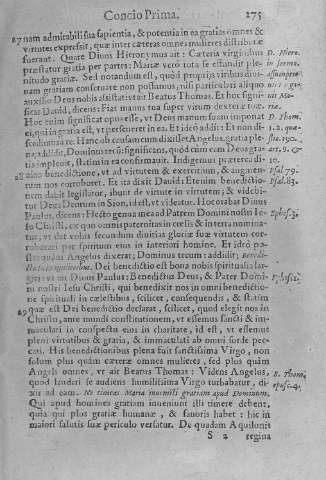 Concio Prima. 275
27 nam admirabili sua sapientia, & potentia in ea gratias omnes &
virtutes expressit, quæ inter cæteras omnes mulieres distributæ
fuerant. Quare Diuus Hieronymus ait: Cæteris virginibus D. Hiero.
præstatur gratia per partes: Mariæ verò tota se effundit plenitudo gratiæ. Sed notandum est, quòd proprijs viribus
nam gratiam conseruare non possumus, nisi particulari aliquo
auxilio Deus nobis assistat: vt ait Beatus Thomas. Et hoc significat Dauid, dicens: Fiat manus tua super virum dexteræ tuæ.
Hoc enim significat opus esse, vt Deus manum suam imponat D. Thom.
ei, qui in gratia est, vt perseueret in ea. Et ideò addit: Et non
discedimus à te. Hanc ob causam cum dixisset Angelus, gratia plena, addidit, Dominus tecum: significans, quòd cum eam Deo gratia impleuit, statim in ea confirmauit. Indigemus præterea diuina
28 benedictione, vt ad virtutem & exercitium, & augmentum nos corroboret. Et ita dixit Dauid: Etenim benedictionem dabit legislator, ibunt de virtute in virtutem; & videbitur Deus Deorum in Sion, id est, vt videatur. Hoc orabat Diuus
Paulus, dicens: Flecto genua mea ad Patrem Domini nostri Iesu Christi, ex quo omnis paternitas in cœlis & in terra nominatur, vt det vobis secundum diuitias gloriæ suæ virtutem corroborari per spiritum eius in interiori homine. Et ideò postquam Angelus dixerat; Dominus tecum: addidit; Benedicta tu in mulieribus. Dei benedictio est bona nobis spiritualia largiri: vt ait Diuus Paulus: Benedictus Deus, & Pater Domini nostri Iesu Christi, qui benedixit nos in omni benedictione spirituali in cælestibus, scilicet, consequendis, & statim
29 quæ est Dei benedictio declarat, scilicet, quod elegit nos in
Christo, ante mundi constitutionem, vt essemus sancti & immaculati in conspectu eius in charitate, id est, vt essemus
pleni virtutibus & gratia, & immaculati ab omni sorde peccati. His benedictionibus plena fuit sanctissima Virgo, non
solum plus quàm cæteræ omnes mulieres, sed plus quàm
Angeli omnes, vt ait Beatus Thomas: Videns Angelus, B. Thom.
quod laudari se audiens humilissima Virgo turbabatur, dixit ad eam. Ne timeas Maria inuenisti gratiam apud Dominum.
Qui apud homines gratiam inueniunt illi timere debent,
quia qui plus gratiæ humanæ, & fauoris habet: hic in
maiori salutis suæ periculo versatur. De quadam Aquilonis
S 2 regina